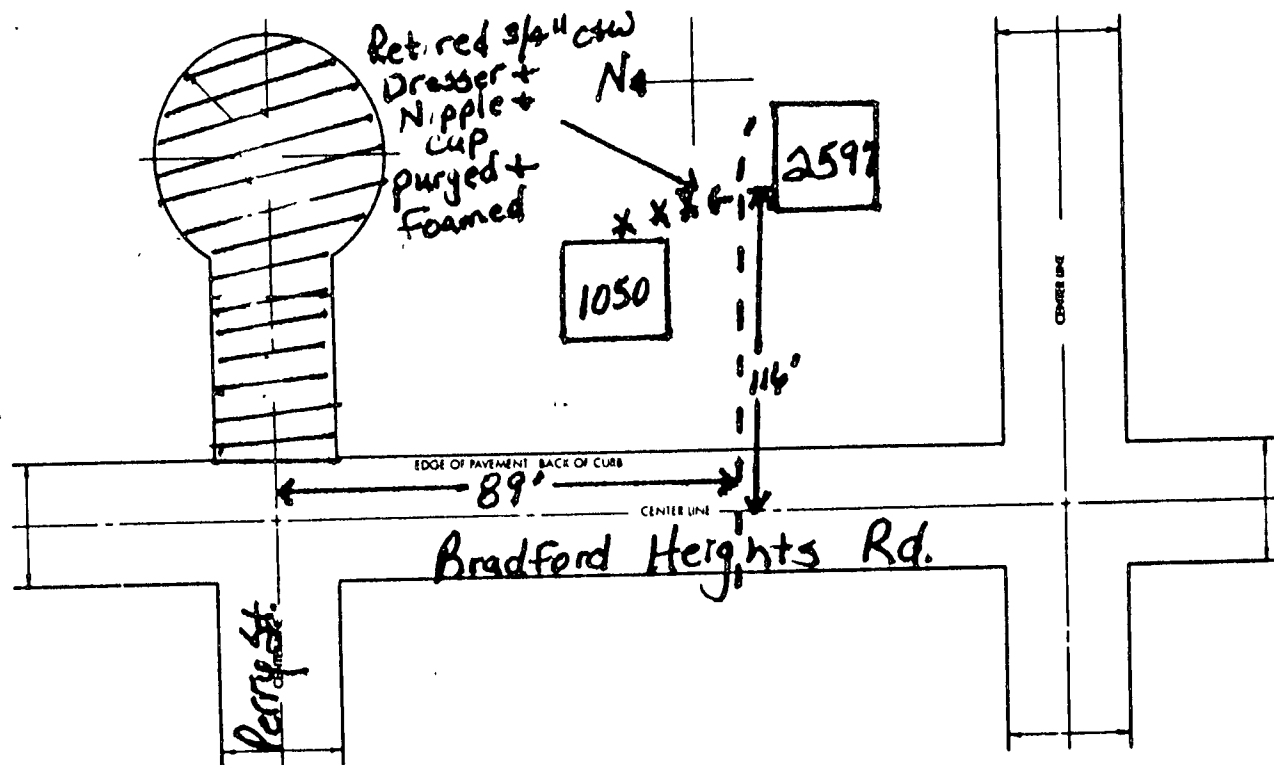 Retired 3/4" CTW
Dresser +
Nipple +
cup
purged +
Foamed
N
2597
1050
116'
CENTER LINE
EDGE OF PAVEMENT BACK OF CURB
89'
CENTER LINE
Bradford Heights Rd.
Perry St.